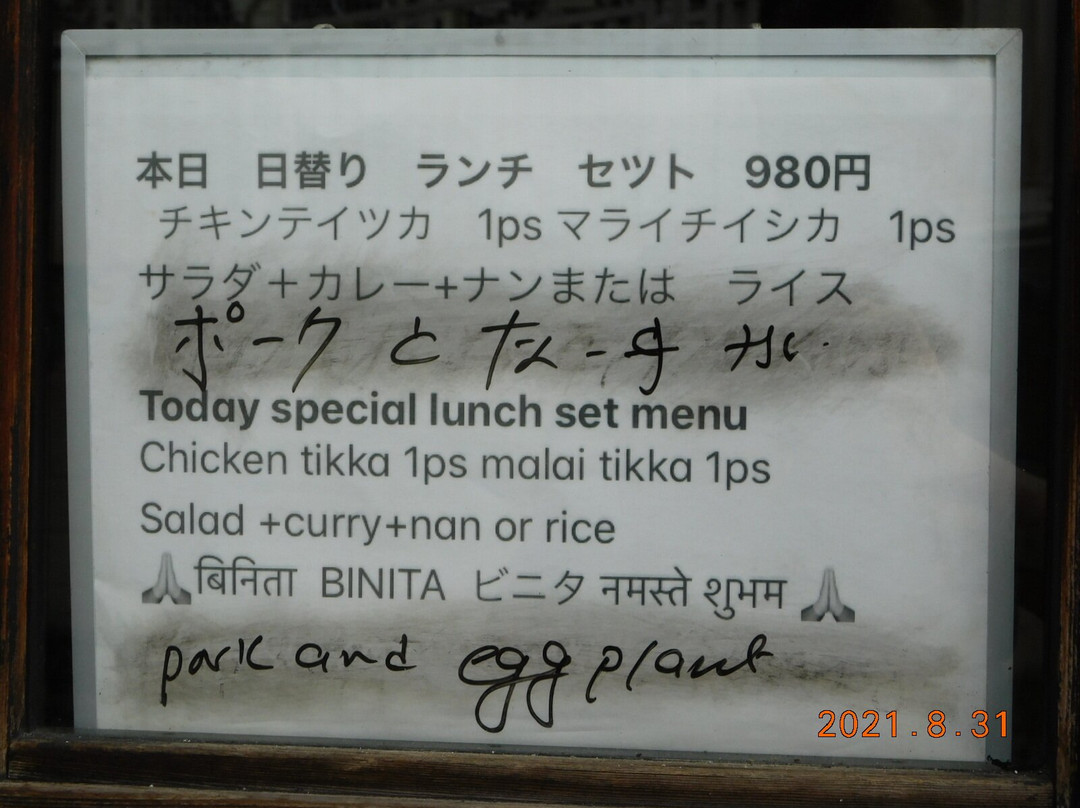 本日　日替り　ランチ　セツト　980円
チキンテイツカ　1ps マライチイシカ　1ps
サラダ＋カレー+ナンまたは　ライス
ポーク と
Today special lunch set menu
Chicken tikka 1ps malai tikka 1ps
Salad +curry+nan or rice
🙏बिनिता BINITA ビニタ नमस्ते शुभम 🙏
pork and eggplant
2021.8.31